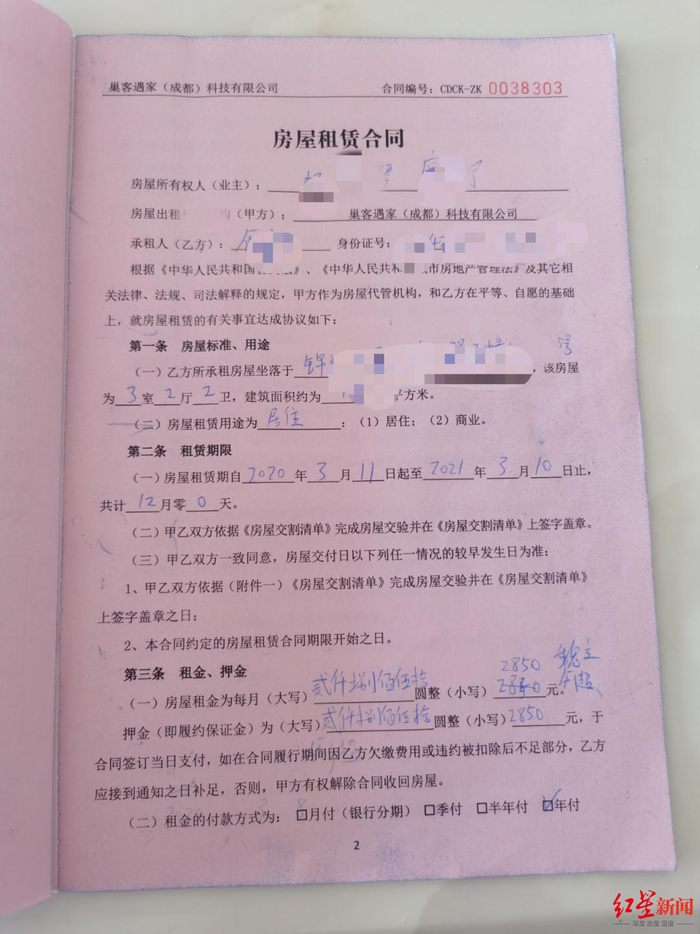 巢客遇家（成都）科技有限公司 合同编号：CDCK-ZK 0038303
房屋租赁合同
房屋所有权人（业主）：
房屋出租 （甲方）： 巢客遇家（成都）科技有限公司
承租人（乙方）： 身份证号：
根据《中华人民共和国 法》、《中华人民共和 市房地产管理法》及其它相
关法律、法规、司法解释的规定，甲方作为房屋代管机构，和乙方在平等、自愿的基础
上，就房屋租赁的有关事宜达成协议如下：
第一条 房屋标准、用途
（一）乙方所承租房屋坐落于 号，该房屋
为3室2厅2卫，建筑面积约为 方米。
（二）房屋租赁用途为居住；（1）居住；（2）商业。
第二条 租赁期限
（一）房屋租赁期自2020年3月11日起至2021年3月10日止，
共计12月零0天。
（二）甲乙双方依据《房屋交割清单》完成房屋交验并在《房屋交割清单》上签字盖章。
（三）甲乙双方一致同意，房屋交付日以下列任一情况的较早发生日为准：
1、甲乙双方依据（附件一）《房屋交割清单》完成房屋交验并在《房屋交割清单》
上签字盖章之日；
2、本合同约定的房屋租赁合同期限开始之日。
第三条 租金、押金
2850
（一）房屋租金为每月（大写）贰仟捌佰伍拾圆整（小写） 元。
押金（即履约保证金）为（大写）贰仟捌佰伍拾圆整（小写）2850元，于
合同签订当日支付，如在合同履行期间因乙方欠缴费用或违约被扣除后不足部分，乙方
应接到通知之日补足，否则，甲方有权解除合同收回房屋。
（二）租金的付款方式为：☐月付（银行分期）☐季付 ☐半年付 ☑年付
2
红星新闻
深度 态度 温度